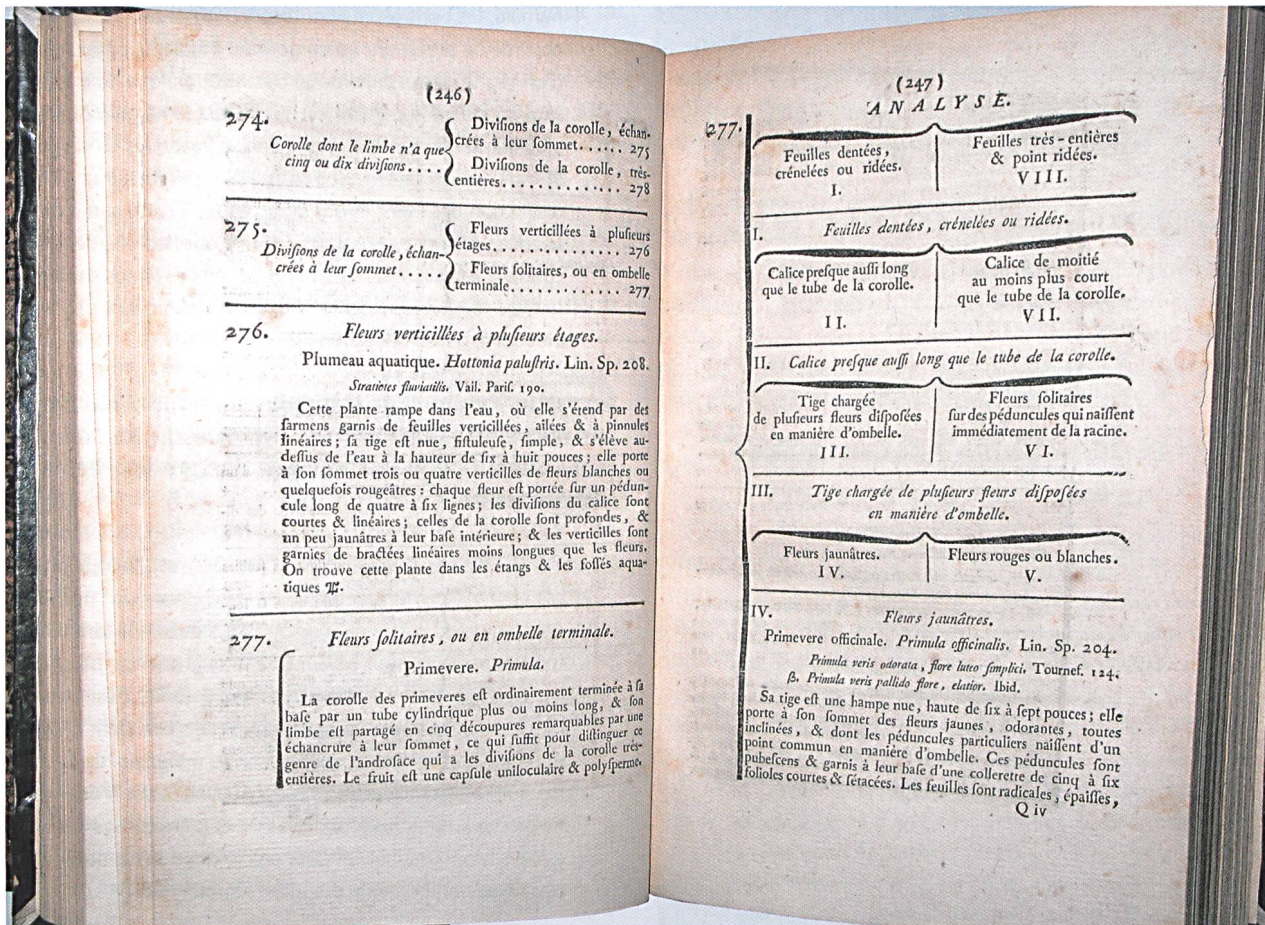 (246)
274.
Corolle dont le limbe n'a que
cinq ou dix diviſions....
Diviſions de la corolle, échan-
crées à leur ſommet...... 275
Diviſions de la corolle, très-
entières.............. 278
275.
Diviſions de la corolle, échan-
crées à leur ſommet.....
Fleurs verticillées à pluſieurs
étages............... 276
Fleurs ſolitaires, ou en ombelle
terminale............. 277
276. Fleurs verticillées à pluſieurs étages.
Plumeau aquatique. Hottonia paluſtris. Lin. Sp. 208.
Stratiotes fluviatilis. Vail. Pariſ. 190.
Cette plante rampe dans l'eau, où elle s'étend par des
ſarmens garnis de feuilles verticillées, ailées & à pinnules
linéaires; ſa tige eſt nue, fiſtuleuſe, ſimple, & s'élève au-
deſſus de l'eau à la hauteur de ſix à huit pouces; elle porte
à ſon ſommet trois ou quatre verticilles de fleurs blanches ou
quelquefois rougeâtres: chaque fleur eſt portée ſur un pédun-
cule long de quatre à ſix lignes; les diviſions du calice ſont
courtes & linéaires; celles de la corolle ſont profondes, &
un peu jaunâtres à leur baſe intérieure; & les verticilles ſont
garnies de bractées linéaires moins longues que les fleurs.
On trouve cette plante dans les étangs & les foſſés aqua-
tiques ♃.
277. Fleurs ſolitaires, ou en ombelle terminale.
Primevere. Primula.
La corolle des primeveres eſt ordinairement terminée à ſa
baſe par un tube cylindrique plus ou moins long, & ſon
limbe eſt partagé en cinq découpures remarquables par une
échancrure à leur ſommet, ce qui ſuffit pour diſtinguer ce
genre de l'androſace qui a les diviſions de la corolle très-
entières. Le fruit eſt une capſule uniloculaire & polyſperme.
(247)
ANALYSE.
277.
Feuilles dentées,
crénelées ou ridées.
I.
Feuilles très-entières
& point ridées.
VIII.
I. Feuilles dentées, crénelées ou ridées.
Calice preſque auſſi long
que le tube de la corolle.
II.
Calice de moitié
au moins plus court
que le tube de la corolle.
VII.
II. Calice preſque auſſi long que le tube de la corolle.
Tige chargée
de pluſieurs fleurs diſpoſées
en manière d'ombelle.
III.
Fleurs ſolitaires
ſur des péduncules qui naiſſent
immédiatement de la racine.
VI.
III. Tige chargée de pluſieurs fleurs diſpoſées
en manière d'ombelle.
Fleurs jaunâtres.
IV.
Fleurs rouges ou blanches.
V.
IV. Fleurs jaunâtres.
Primevere officinale. Primula officinalis. Lin. Sp. 204.
Primula veris odorata, flore luteo ſimplici. Tournef. 124.
β. Primula veris pallido flore, elatior. Ibid.
Sa tige eſt une hampe nue, haute de ſix à ſept pouces; elle
porte à ſon ſommet des fleurs jaunes, odorantes, toutes
inclinées, & dont les péduncules particuliers naiſſent d'un
point commun en manière d'ombelle. Ces péduncules ſont
pubeſcens & garnis à leur baſe d'une collerette de cinq à ſix
folioles courtes & ſétacées. Les feuilles ſont radicales, épaiſſes,
Q iv